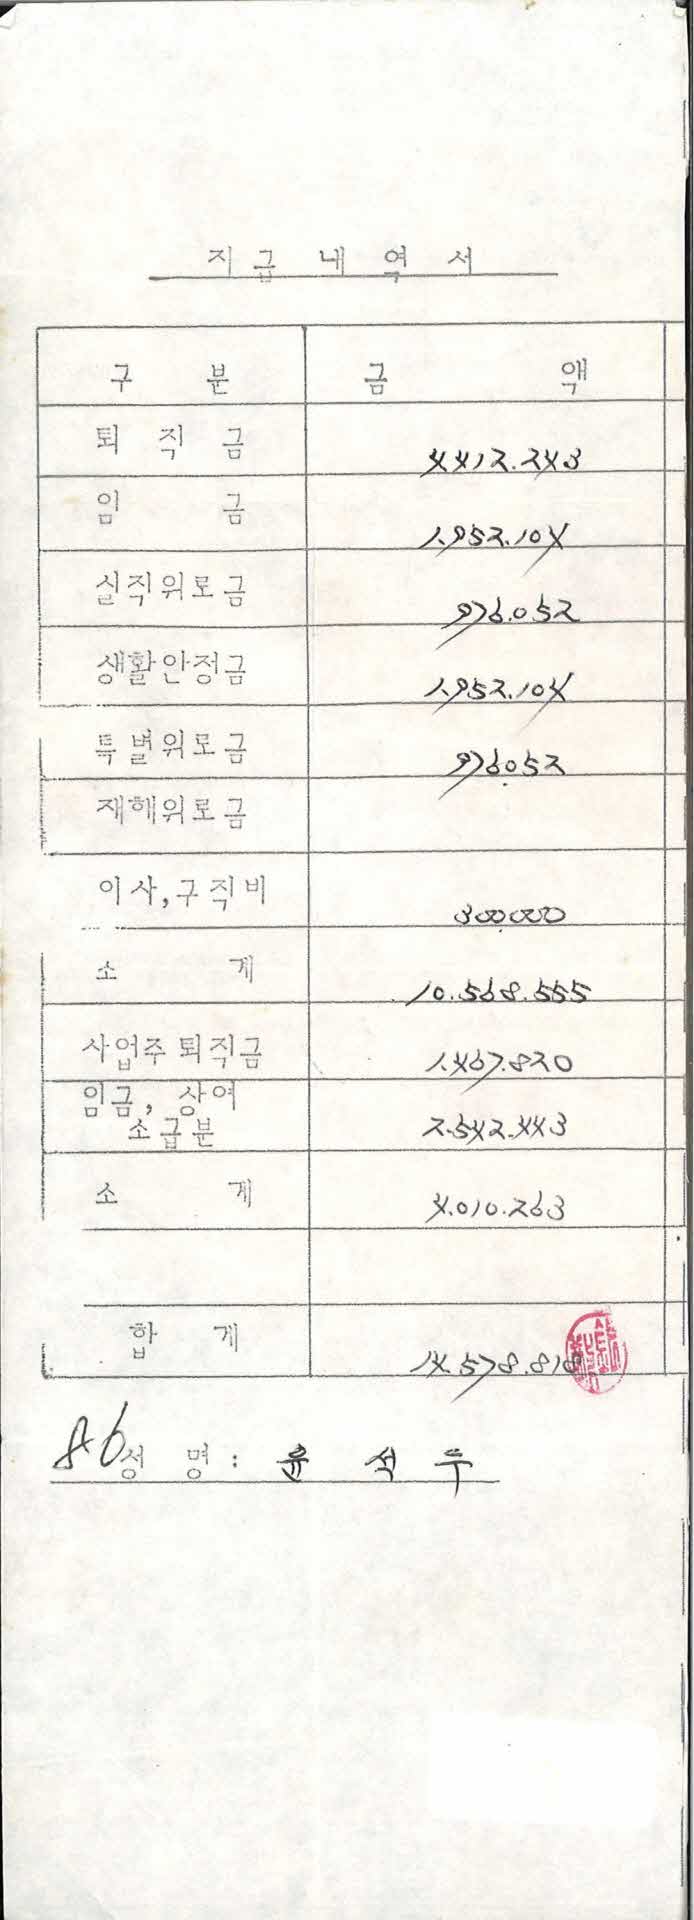 지급 내역서
구 분 금 액
퇴 직 금 4412.243
임 금 1.952.104
실직위로금 976.052
생활안정금 1.952.104
특별위로금 976052
재해위로금
이사,구직비 300000
소 계 10.568.555
사업주 퇴직금 1.467.820
임금, 상여
소급분 2.542.443
소 계 4.010.263
합 계 14.578.818
86 성 명 : 윤 석 두